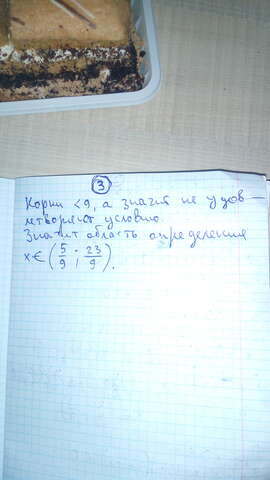 3
Корни < 9, а значит не удов-
летворяют условию.
Значит область определения
x ∈ (5/9 ; 23/9).